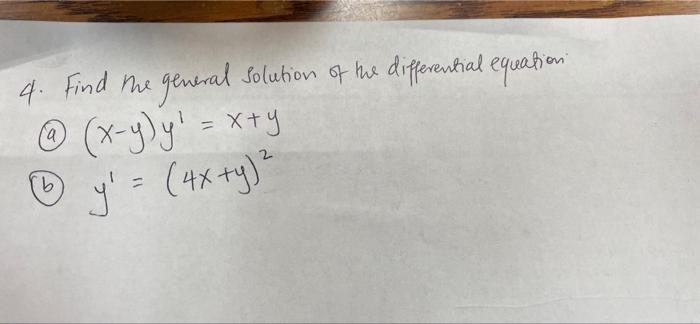 4. Find the general solution of the differential equation
(a) (x-y)y' = x+y
(b) y' = (4x+y)²